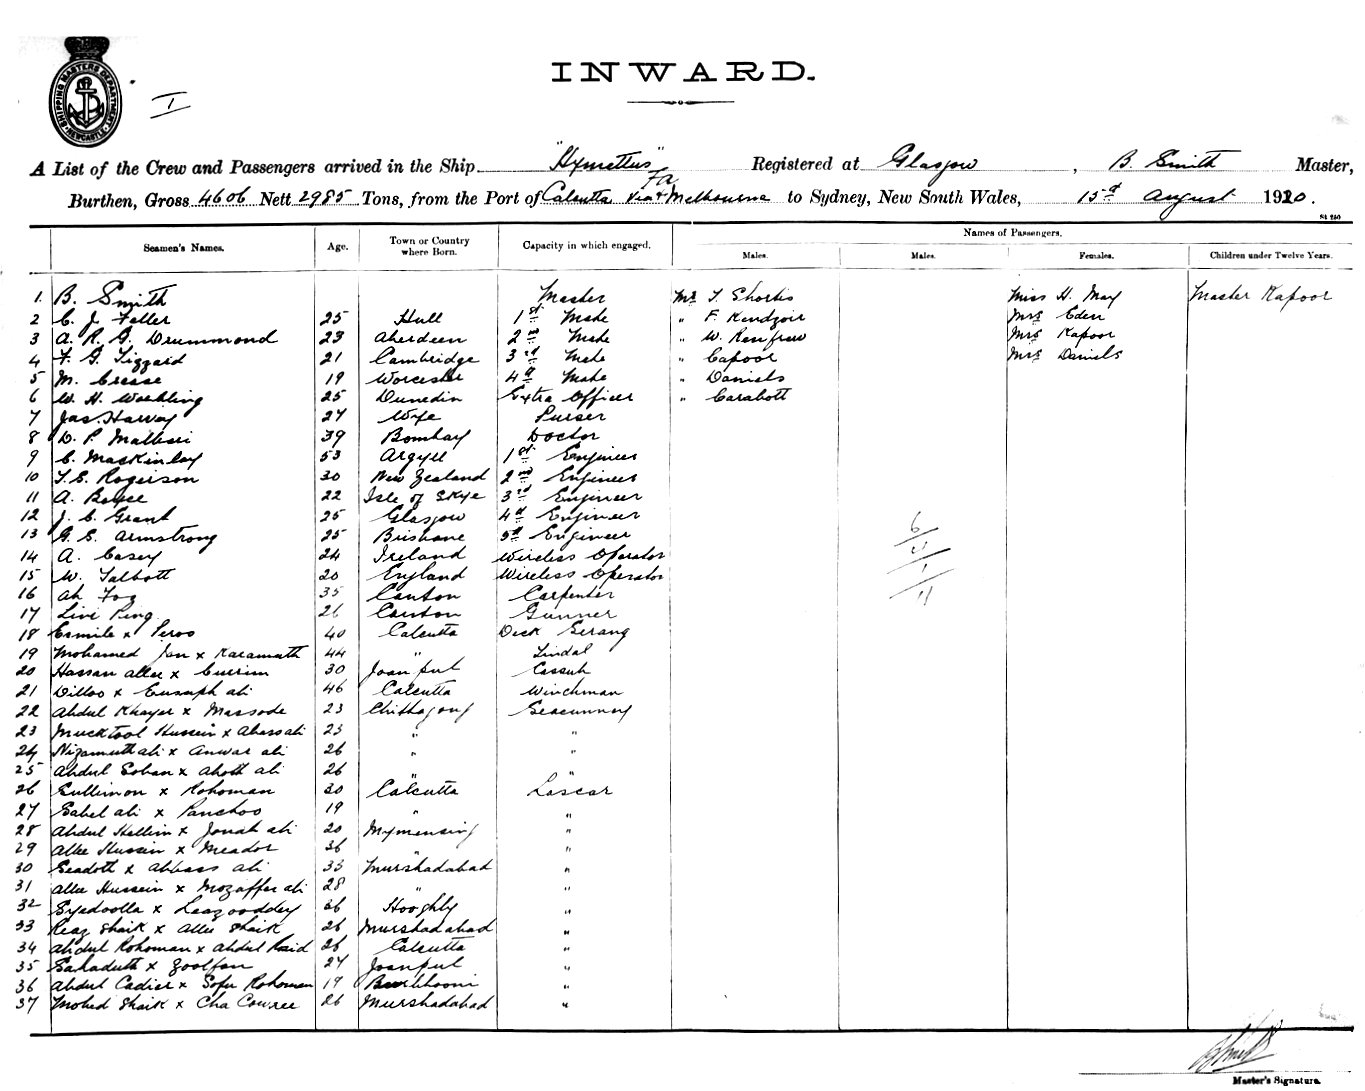 SHIPPING MASTERS DEPARTMENT NEWCASTLE
I
INWARD.
A List of the Crew and Passengers arrived in the Ship "Hymettus" Registered at Glasgow, B. Smith Master,
Burthen, Gross 4606 Nett 2985 Tons, from the Port of Calcutta via Melbourne to Sydney, New South Wales, 15th August 1920.
St 240
Seamen's Names. Age. Town or Country where Born. Capacity in which engaged. Names of Passengers.
Males. Males. Females. Children under Twelve Years.
1 B. Smith Master Mr T. Shortis Miss H. May Master Kapoor
2 C. J. Feller 25 Hull 1st Mate " F. Mrs Eden
3 A. R. G. Drummond 23 Aberdeen 2nd Mate " W. Renfrew Mrs Kapoor
4 F. G. Tizzard 21 Cambridge 3rd Mate " Capoor Mrs Daniels
5 M. Cresse 19 Worcester 4th Mate " Daniels
6 W. H. 25 Dunedin Extra Officer " Carabott
7 Jas. Harvey 27 Wye Purser
8 D. P. 39 Bombay Doctor
9 C. MacKinlay 53 Argyll 1st Engineer
10 T. E. Rogerson 30 New Zealand 2nd Engineer
11 A. Boyce 22 Isle of Skye 3rd Engineer
12 J. C. Grant 25 Glasgow 4th Engineer
13 G. E. Armstrong 25 Brisbane 5th Engineer
14 A. Casey 24 Ireland Wireless Operator
15 W. Talbott 20 England Wireless Operator
16 Ah Foy 35 Canton Carpenter
17 Ping 26 Canton Gunner
18 Esmile x Peroo 40 Calcutta Deck Serang
19 Mohamed Jan x Karamuth 44 " Tindal
20 Hassan Allee x Currim 30 Joanpul Cassub
21 Dilloo x Eusuph Ali 46 Calcutta Winchman
22 Abdul Khayer x Massode 23 Chittagong Seacunney
23 Mucktool Hussein x Abass Ali 23 " "
24 Nizamuth Ali x Anwar Ali 26 " "
25 Abdul Soban x Ali 26 " "
26 Sullimon x Rohoman 30 Calcutta Lascar
27 Sabel Ali x Panchoo 19 " "
28 Abdul x Jonab Ali 20 Mymensing "
29 Allee Hussein x Meador 36 " "
30 x Abbass Ali 33 Murshadabad "
31 Allee Hussein x Mozaffer Ali 28 " "
32 Syedoolla x 36 Hooghly "
33 Reaz Shaik x Allee Shaik 26 Murshadabad "
34 Abdul Rohoman x Abdul Raid 26 Calcutta "
35 Sahaduth x Zoolfan 27 Joanpul "
36 Abdul Cadier x Sofur Rohoman 19 "
37 Mohed Shaik x Cha Cowree 26 Murshadabad "
6
4
1
11
B Smith
Master's Signature.